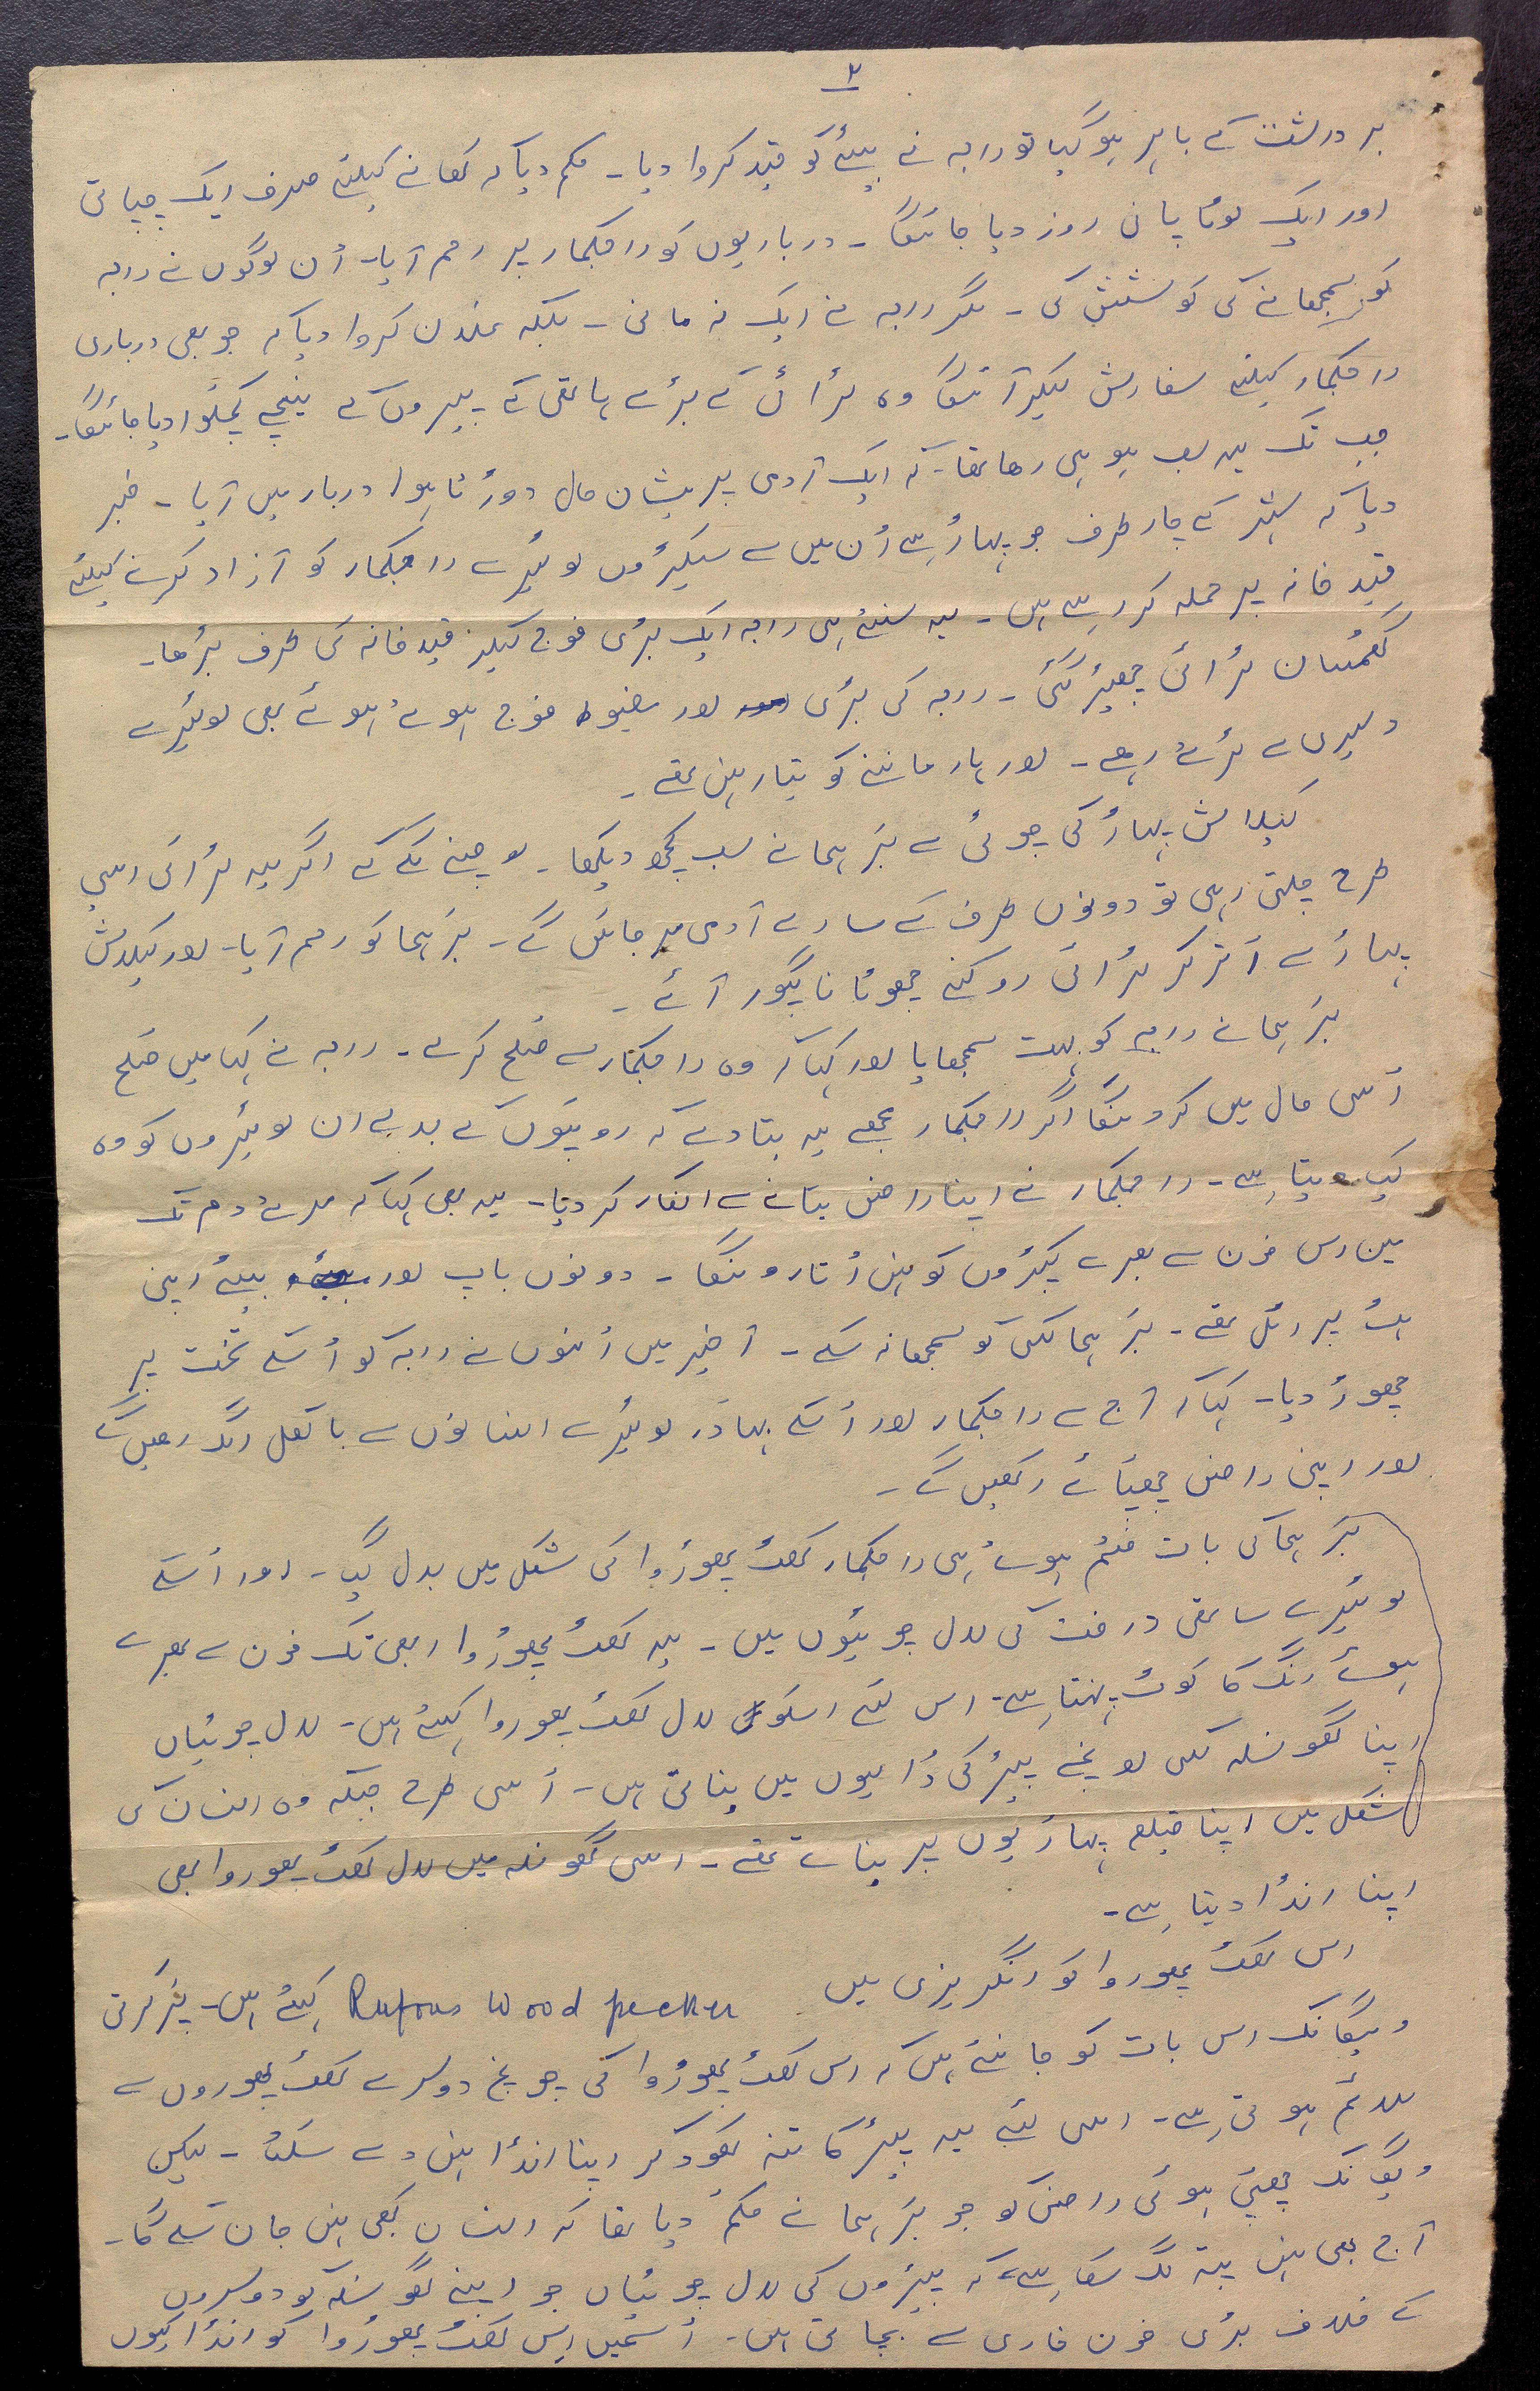 ۲
بردرشت کے باہر ہو گیا تو راجہ نے بیٹے کو قید کروا دیا۔ حکم دیا کہ کھانے کیلئے صرف ایک چپاتی
اور ایک لوٹا پانی روز دیا جائیگا۔ درباریوں کو راجکمار پر رحم آیا۔ اُن لوگوں نے راجہ
کو سمجھانے کی کوشش کی۔ مگر راجہ نے ایک نہ مانی۔ بلکہ علان کروا دیا کہ جو بھی درباری
راجکمار کیلئے سفارش لیکر آئیگا وہ لڑائی کے بڑے ہاتھی کے پیروں کے نیچے کچلوا دیا جائیگا۔
جب تک یہ سب ہو ہی رہا تھا۔ کہ ایک آدمی پریشان حال دوڑتا ہوا دربار میں آیا۔ خبر
دیا کہ شہر کے چار طرف جو پہاڑ ہے اُن میں سے سیکڑوں لوٹیرے راجکمار کو آزاد کرنے کیلئے
قید خانہ پر حملہ کر رہے ہیں۔ یہ سنتے ہی راجہ ایک بڑی فوج لیکر قید خانہ کی طرف بڑھا۔
گھمسان لڑائی چھیڑ گئی۔ راجہ کی بڑی اور مضبوط فوج ہوتے ہوئے بھی لوٹیرے
دلیری سے لڑتے رہے۔ اور ہار ماننے کو تیار نہیں تھے۔
کیلاش پہاڑ کی چوٹی سے برہما نے سب کچھ دیکھا۔ سوچنے لگے کے اگر یہ لڑائی اسی
طرح چلتی رہی تو دونوں طرف کے سارے آدمی مر جائیں گے۔ برہما کو رحم آیا۔ اور کیلاش
پہاڑ سے اُتر کر لڑائی روکنے چھوٹا ناگپور آئے۔
برہما نے راجہ کو بہت سمجھایا اور کہا کہ وہ راجکمار سے صُلح کر لے۔ راجہ نے کہا میں صُلح
اُسی حال میں کرونگا اگر راجکمار مجھے یہ بتا دے کہ روپیوں کے بدلے ان لوٹیروں کو وہ
کیا دیتا ہے۔ راجکمار نے اپنا راض بتانے سے انکار کر دیا۔ یہ بھی کہا کہ مرتے دم تک
میں اس خون سے بھرے کپڑوں کو نہیں اُتارونگا۔ دونوں باپ اور بیٹے اپنی
ہٹ پر اٹل تھے۔ برہما کسی کو سمجھا نہ سکے۔ آخیر میں اُنہوں نے راجہ کو اُسکے تخت پر
چھوڑ دیا۔ کہا کہ آج سے راجکمار اور اُسکے بہادُر لوٹیرے انسانوں سے بالکل الگ رہیں گے
اور اپنی راض چھپائے رکھیں گے۔
برہما کی بات ختم ہوتے ہی راجکمار کٹھ پھوڑوا کی شکل میں بدل گیا۔ اور اُسکے
لوٹیرے ساتھی درخت کی لال چوٹیوں میں۔ یہ کٹھ پھوڑوا ابھی تک خون سے بھرے
ہوئے رنگ کا کوٹ پہنتا ہے۔ اس لئے اسکو لال کٹھ پھوروا کہتے ہیں۔ لال چوٹیاں
اپنا گھونسلہ کسی اونچے پیڑ کی ڈالیوں میں بناتی ہیں۔ اُسی طرح جبکہ وہ انسان کی
شکل میں اپنا قیلعہ پہاڑیوں پر بناتے تھے۔ اسی گھونسلہ میں لال کٹھ پھوروا بھی
اپنا انڈا دیتا ہے۔
اس کٹھ پھوروا کو انگریزی میں Rufous Wood pecker کہتے ہیں۔ پرکرتی
ویگیانک اس بات کو جانتے ہیں کہ اس کٹھ پھوڑوا کی چونچ دوسرے کٹھ پھوروں سے
ملائم ہوتی ہے۔ اسی لئے یہ پیڑ کا تنہ کھود کر اپنا انڈا نہیں دے سکتا۔ لیکن
ویگیانک چھپی ہوئی راض کو جو برہما نے حکم دیا تھا کہ انسان کبھی نہیں جان سکے گا۔
آج بھی نہیں پتہ لگ سکا ہے، کہ پیڑوں کی لال چوٹیاں جو اپنے گھونسلہ کو دوسروں
کے خلاف بڑی خون خاری سے بچاتی ہیں۔ اُسمیں اِس کٹھ پھوڑوا کو انڈا کیوں